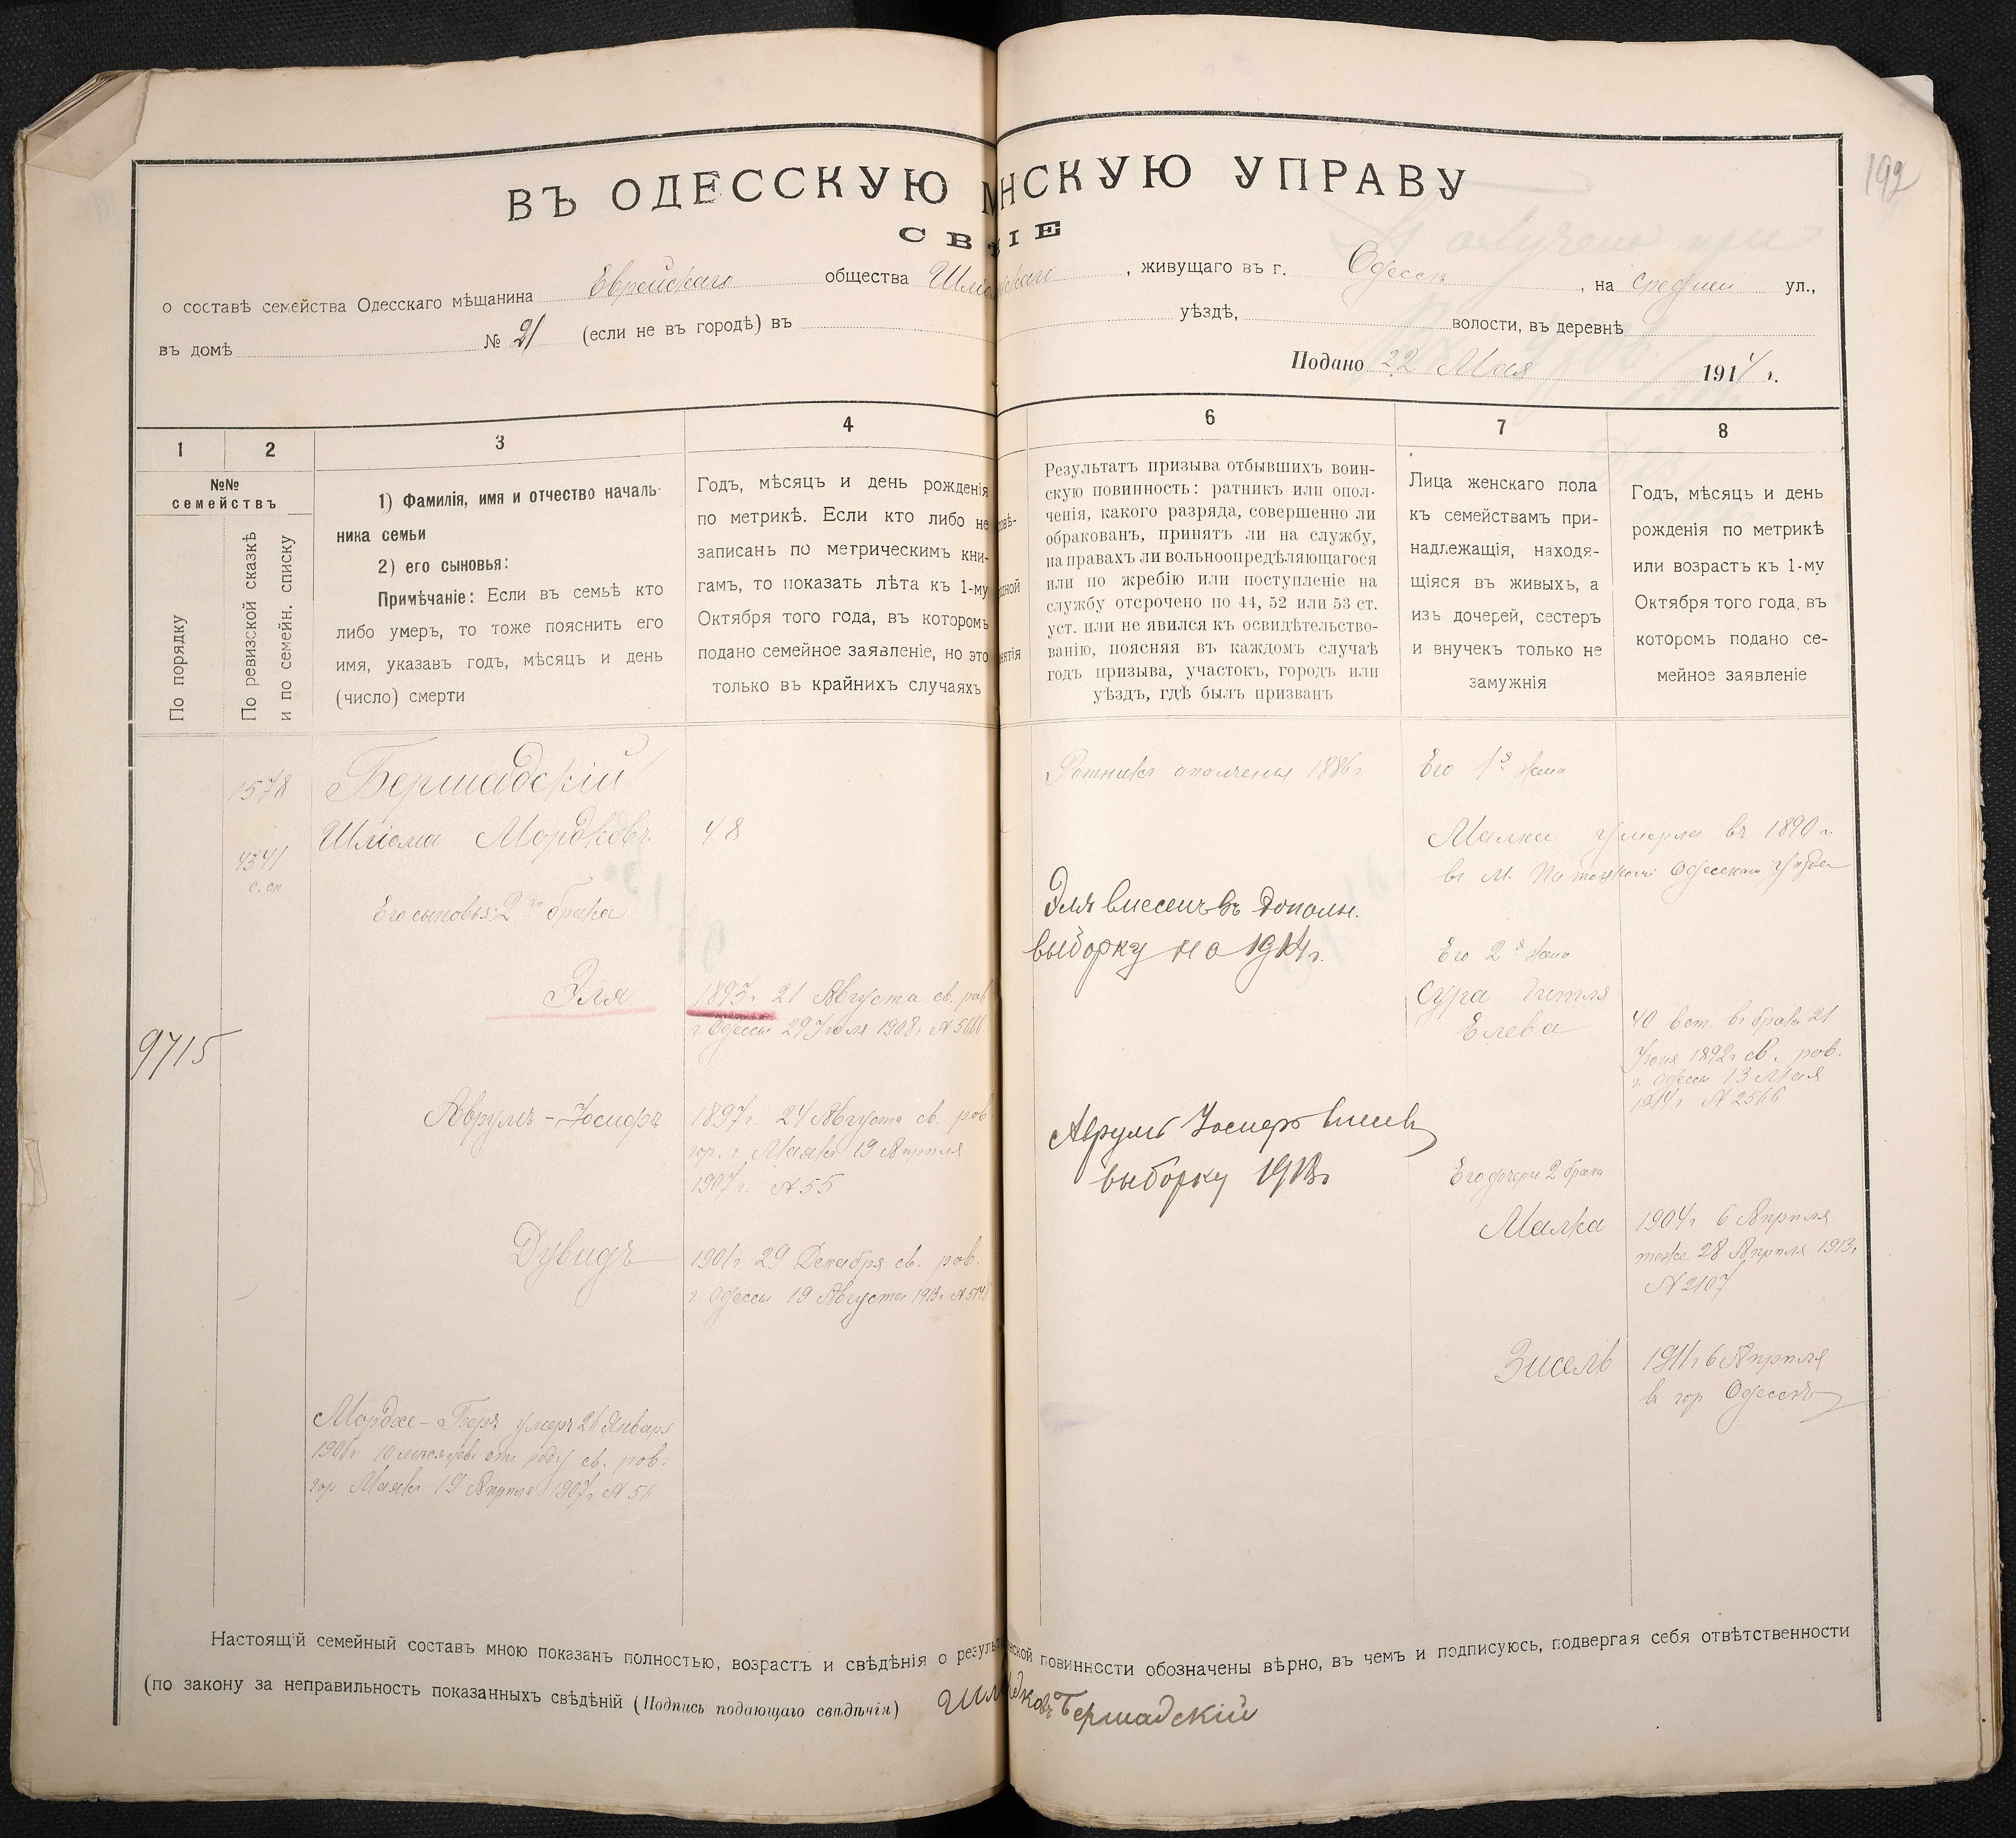 192
ВЪ ОДЕССКУЮ НСКУЮ УПРАВУ
СВ ІЕ
о составѣ семейства Одесскаго мѣщанина Еврейскаго общества , живущаго въ г. Одессѣ , на Средней ул.,
въ домѣ № 21 (если не въ городѣ) въ уѣздѣ, волости, въ деревнѣ
Подано 22 Мая 1914 г.
1 2 3 4 6 7 8
№№ семействъ
По порядку
По ревизской сказкѣ и по семейн. списку
1) Фамилія, имя и отчество началь-
ника семьи
2) его сыновья:
Примѣчаніе: Если въ семьѣ кто
либо умеръ, то тоже пояснить его
имя, указавъ годъ, мѣсяцъ и день
(число) смерти
Годъ, мѣсяцъ и день рожденія
по метрикѣ. Если кто либо не
записанъ по метрическимъ кни-
гамъ, то показать лѣта къ 1-му
Октября того года, въ которомъ
подано семейное заявленіе, но это
только въ крайнихъ случаяхъ
Результатъ призыва отбывшихъ воин-
скую повинность: ратникъ или опол-
ченія, какого разряда, совершенно ли
обракованъ, принятъ ли на службу,
на правахъ ли вольноопредѣляющагося
или по жребію или поступленіе на
службу отсрочено по 44, 52 или 53 ст.
уст. или не явился къ освидѣтельство-
ванію, поясняя въ каждомъ случаѣ
годъ призыва, участокъ, городъ или
уѣздъ, гдѣ былъ призванъ
Лица женскаго пола
къ семействамъ при-
надлежащія, находя-
щіяся въ живыхъ, а
изъ дочерей, сестеръ
и внучекъ только не
замужнія
Годъ, мѣсяцъ и день
рожденія по метрикѣ
или возрастъ къ 1-му
Октября того года, въ
которомъ подано се-
мейное заявленіе
1578
4341
с. сп
9715
Бершадскій
Шліома Мордковъ
Его сыновья: 2го брака
Эля
Аврумъ-Іосифъ
Дувидъ
Мордхе-Беръ умеръ 26 Января
190 г. 10 мѣсяцевъ отъ роду св. рав.
гор Маякъ 19 Апрѣля 1907 г. № 56
48
1893 г. 21 Августа св. рав
г. Одессы 29 Іюля 1908 г. №
1897 г. 24 Августа св. рав
гор. г. Маякъ 19 Апрѣля
1907 г. № 55
1901 г. 29 Декабря св. рав.
г. Одессы 19 Августа 1913 г. №
Ратникъ ополченія 1886 г
Эля внесенъ въ дополн.
выборку на 1914 г.
Аврумъ Іосифъ внесенъ
выборку 1918 г
Его 1я жена
Малка умерла въ 1890 г.
въ м. Одесскаго уѣзда
Его 2я жена
Сура Гитля
Елева
Его дочери 2 брака
Малка
Зисель
40 вст. въ бракъ 21
Іюня 1892 г. св. рав.
г. Одессы 13 Мая
1914 г. № 2566
1904 г 6 Апрѣля
тоже 28 Апрѣля 1913 г
№ 2107
1911 г 6 Апрѣля
въ гор Одессѣ
Настоящій семейный составъ мною показанъ полностью, возрастъ и свѣдѣнія о резуль нской повинности обозначены вѣрно, въ чемъ и подписуюсь, подвергая себя отвѣтственности
(по закону за неправильность показанныхъ свѣдѣній (Подпись подающаго свѣдѣнія) Шл дковъ Бершадскій